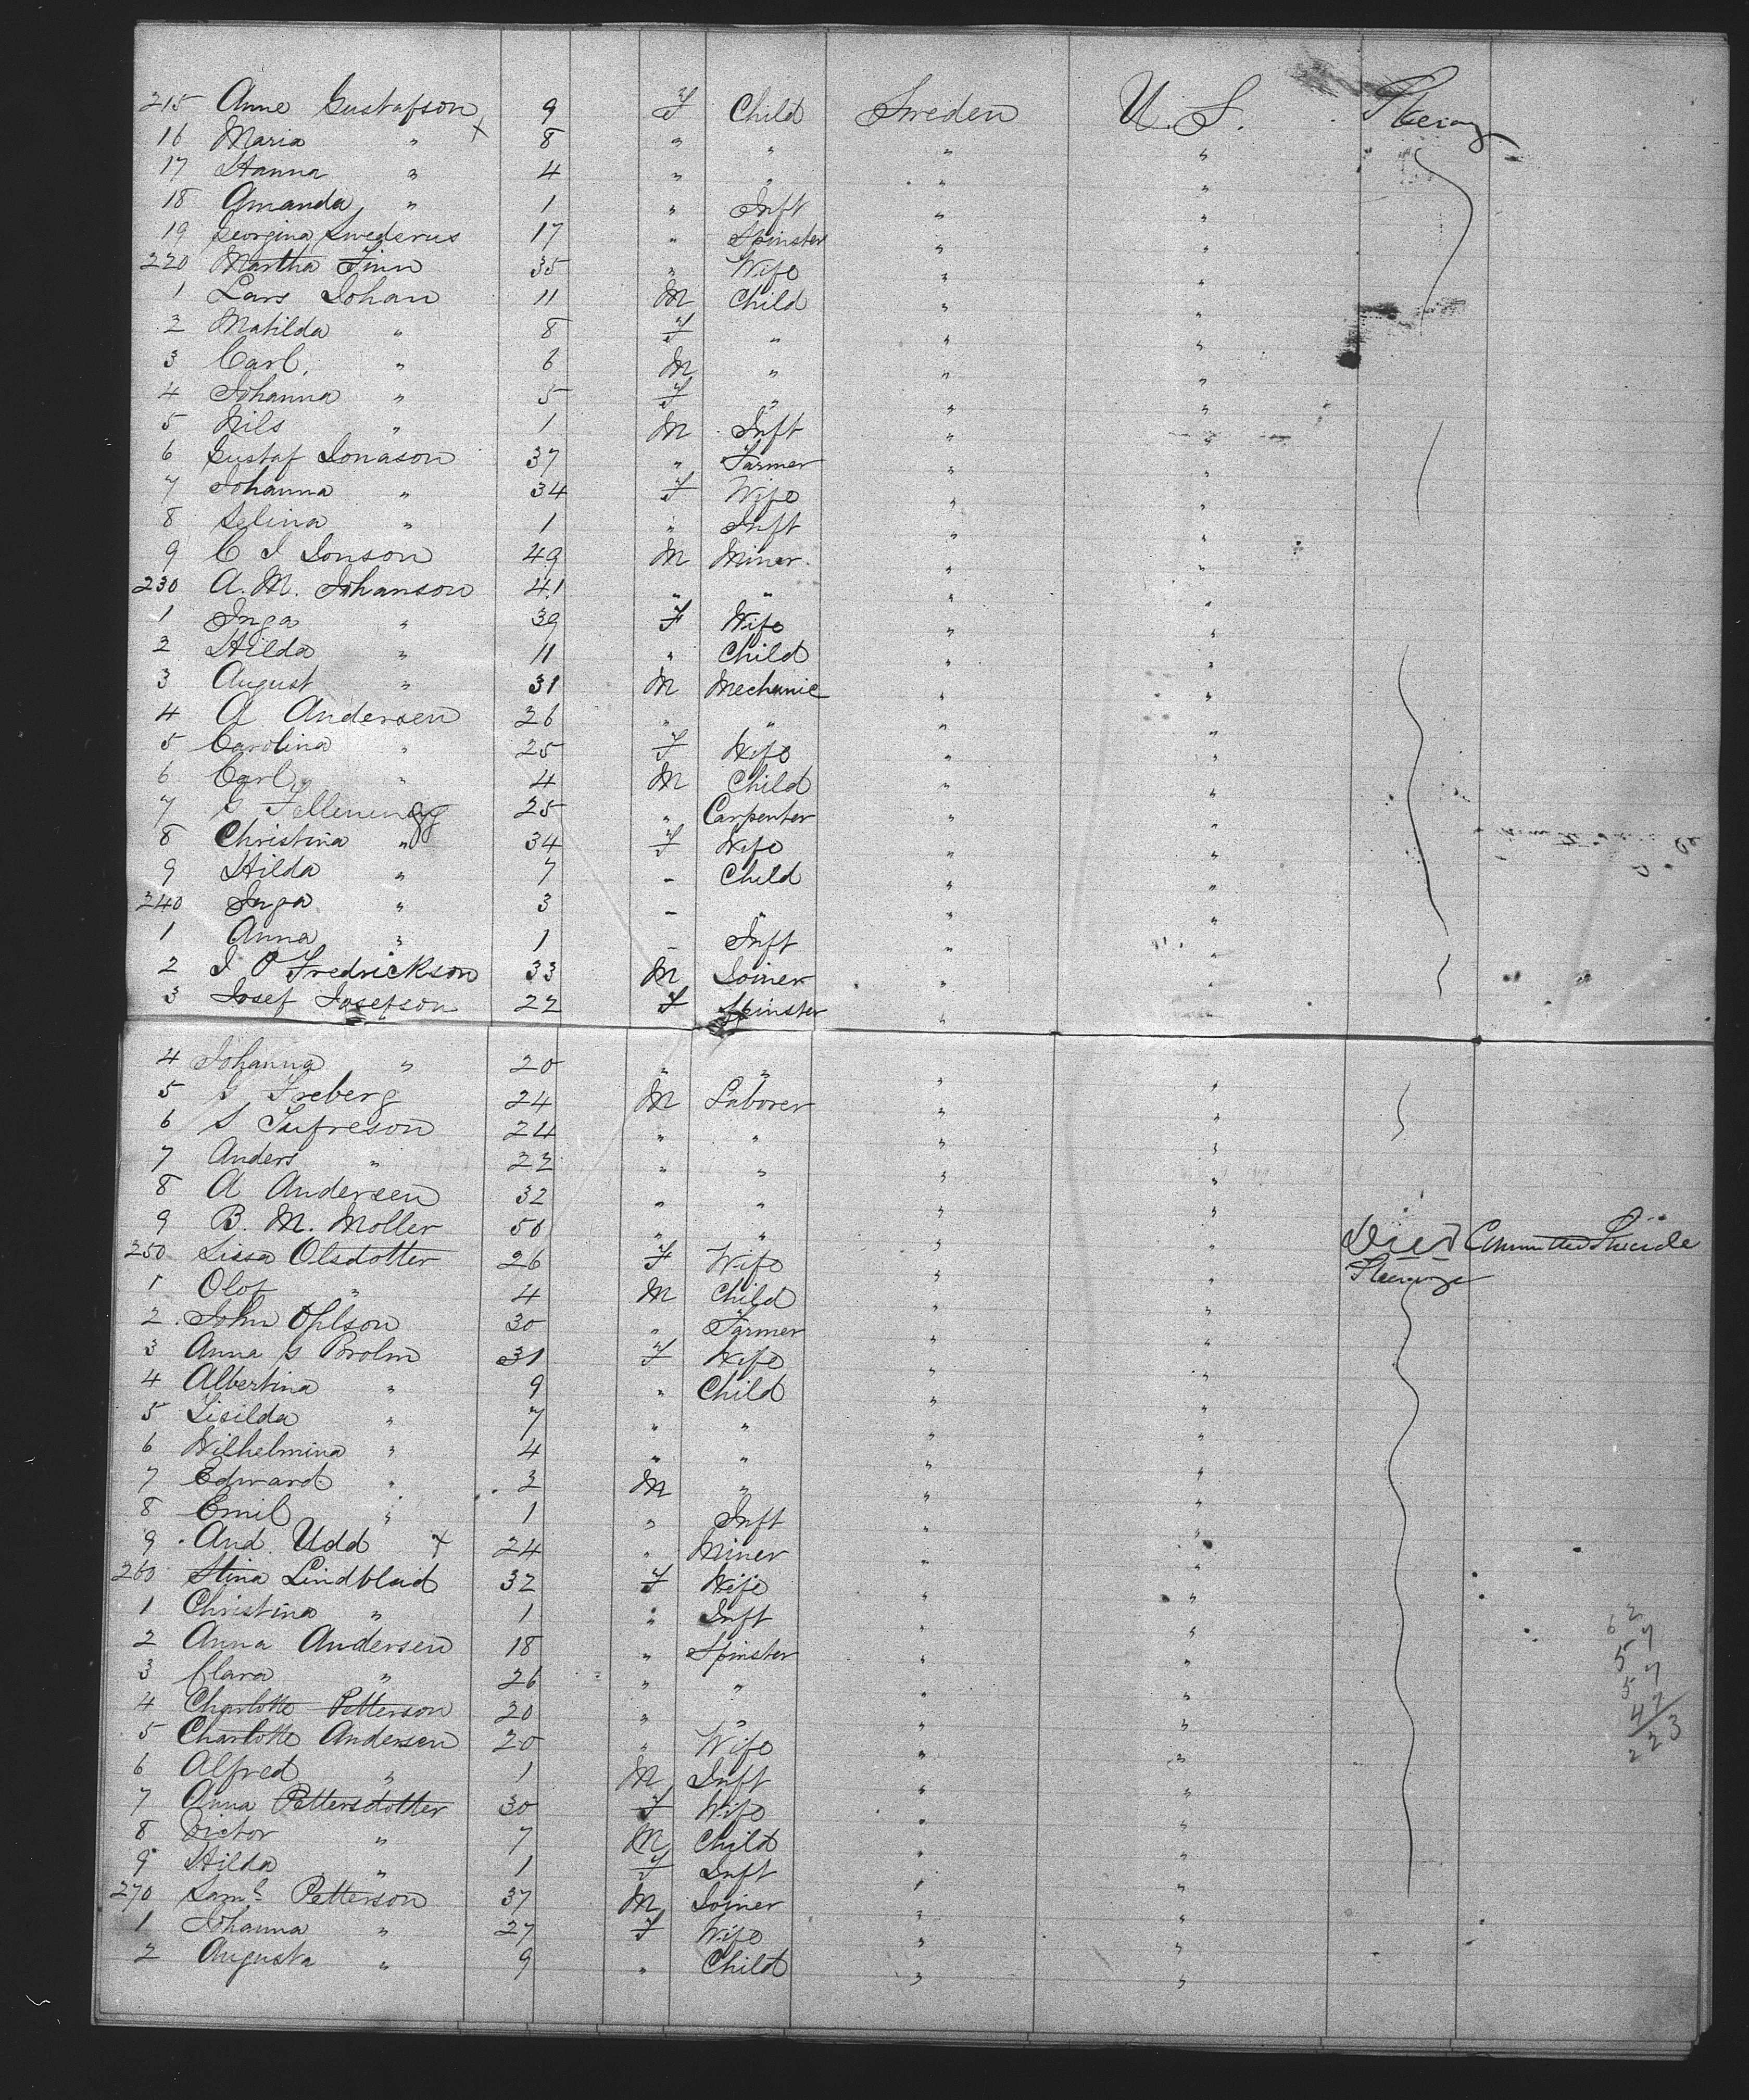 215 Anne Gustafson 9 F Child Sweden U.S. Steerage
16 Maria " x 8 " " " "
17 Hanna " 4 " " " "
18 Amanda " 1 " Inft " "
19 Georgina Swederus 17 " Spinster " "
220 Martha Finn 35 " Wife " "
1 Lars Johan 11 M Child " "
2 Matilda " 8 F " " "
3 Carl " 6 M " " "
4 Johanna " 5 F " " "
5 Nils " 1 M Inft " "
6 Gustaf Jonason 37 " Farmer " "
7 Johanna " 34 F Wife " "
8 Selina " 1 " Inft " "
9 C J Jonson 49 M Miner " "
230 A. M. Johanson 41 " " " "
1 Inga " 39 F Wife " "
2 Hilda " 11 " Child " "
3 August " 31 M Mechanic " "
4 A Andersen 26 " " " "
5 Carolina " 25 F Wife " "
6 Carl " 4 M Child " "
7 25 " Carpenter " "
8 Christina " 34 F Wife " "
9 Hilda " 7 - Child " "
240 Inga " 3 - " " "
1 Anna " 1 - Inft " "
2 J P Fredrickson 33 M Joiner " "
3 Josef Josefson 22 F Spinster " "
4 Johanna " 20 " " " "
5 Freberg 24 M Laborer " "
6 S Tufreson 24 " " " "
7 Anders " 22 " " " "
8 A Andersen 32 " " " "
9 B. M. Moller 50 " " " " Died Committed Suicide
250 Lissa Olsdotter 26 F Wife " " Steerage
1 Olof " 4 M Child " "
2 John Ohlson 30 " Farmer " "
3 Anna S Broln 31 F Wife " "
4 Albertina " 9 " Child " "
5 Lisilda " 7 " " " "
6 Wilhelmina " 4 " " " "
7 Edward " 2 M " " "
8 Emil " 1 " Inft " "
9 And. Udd x 24 " Miner " "
260 Stina Lindblad 32 F Wife " "
1 Christina " 1 " Inft " "
2 Anna Andersen 18 " Spinster " "
3 Clara " 26 " " " "
4 Charlotte Petterson 20 " " " "
5 Charlotte Andersen 20 " Wife " "
6 Alfred " 1 M Inft " "
7 Anna Pettersdotter 30 F Wife " "
8 Victor " 7 M Child " "
9 Hilda " 1 F Inft " "
270 Saml Petterson 37 M Joiner " "
1 Johanna " 27 F Wife " "
2 Augusta " 9 " Child " "
62
57
57
47
223